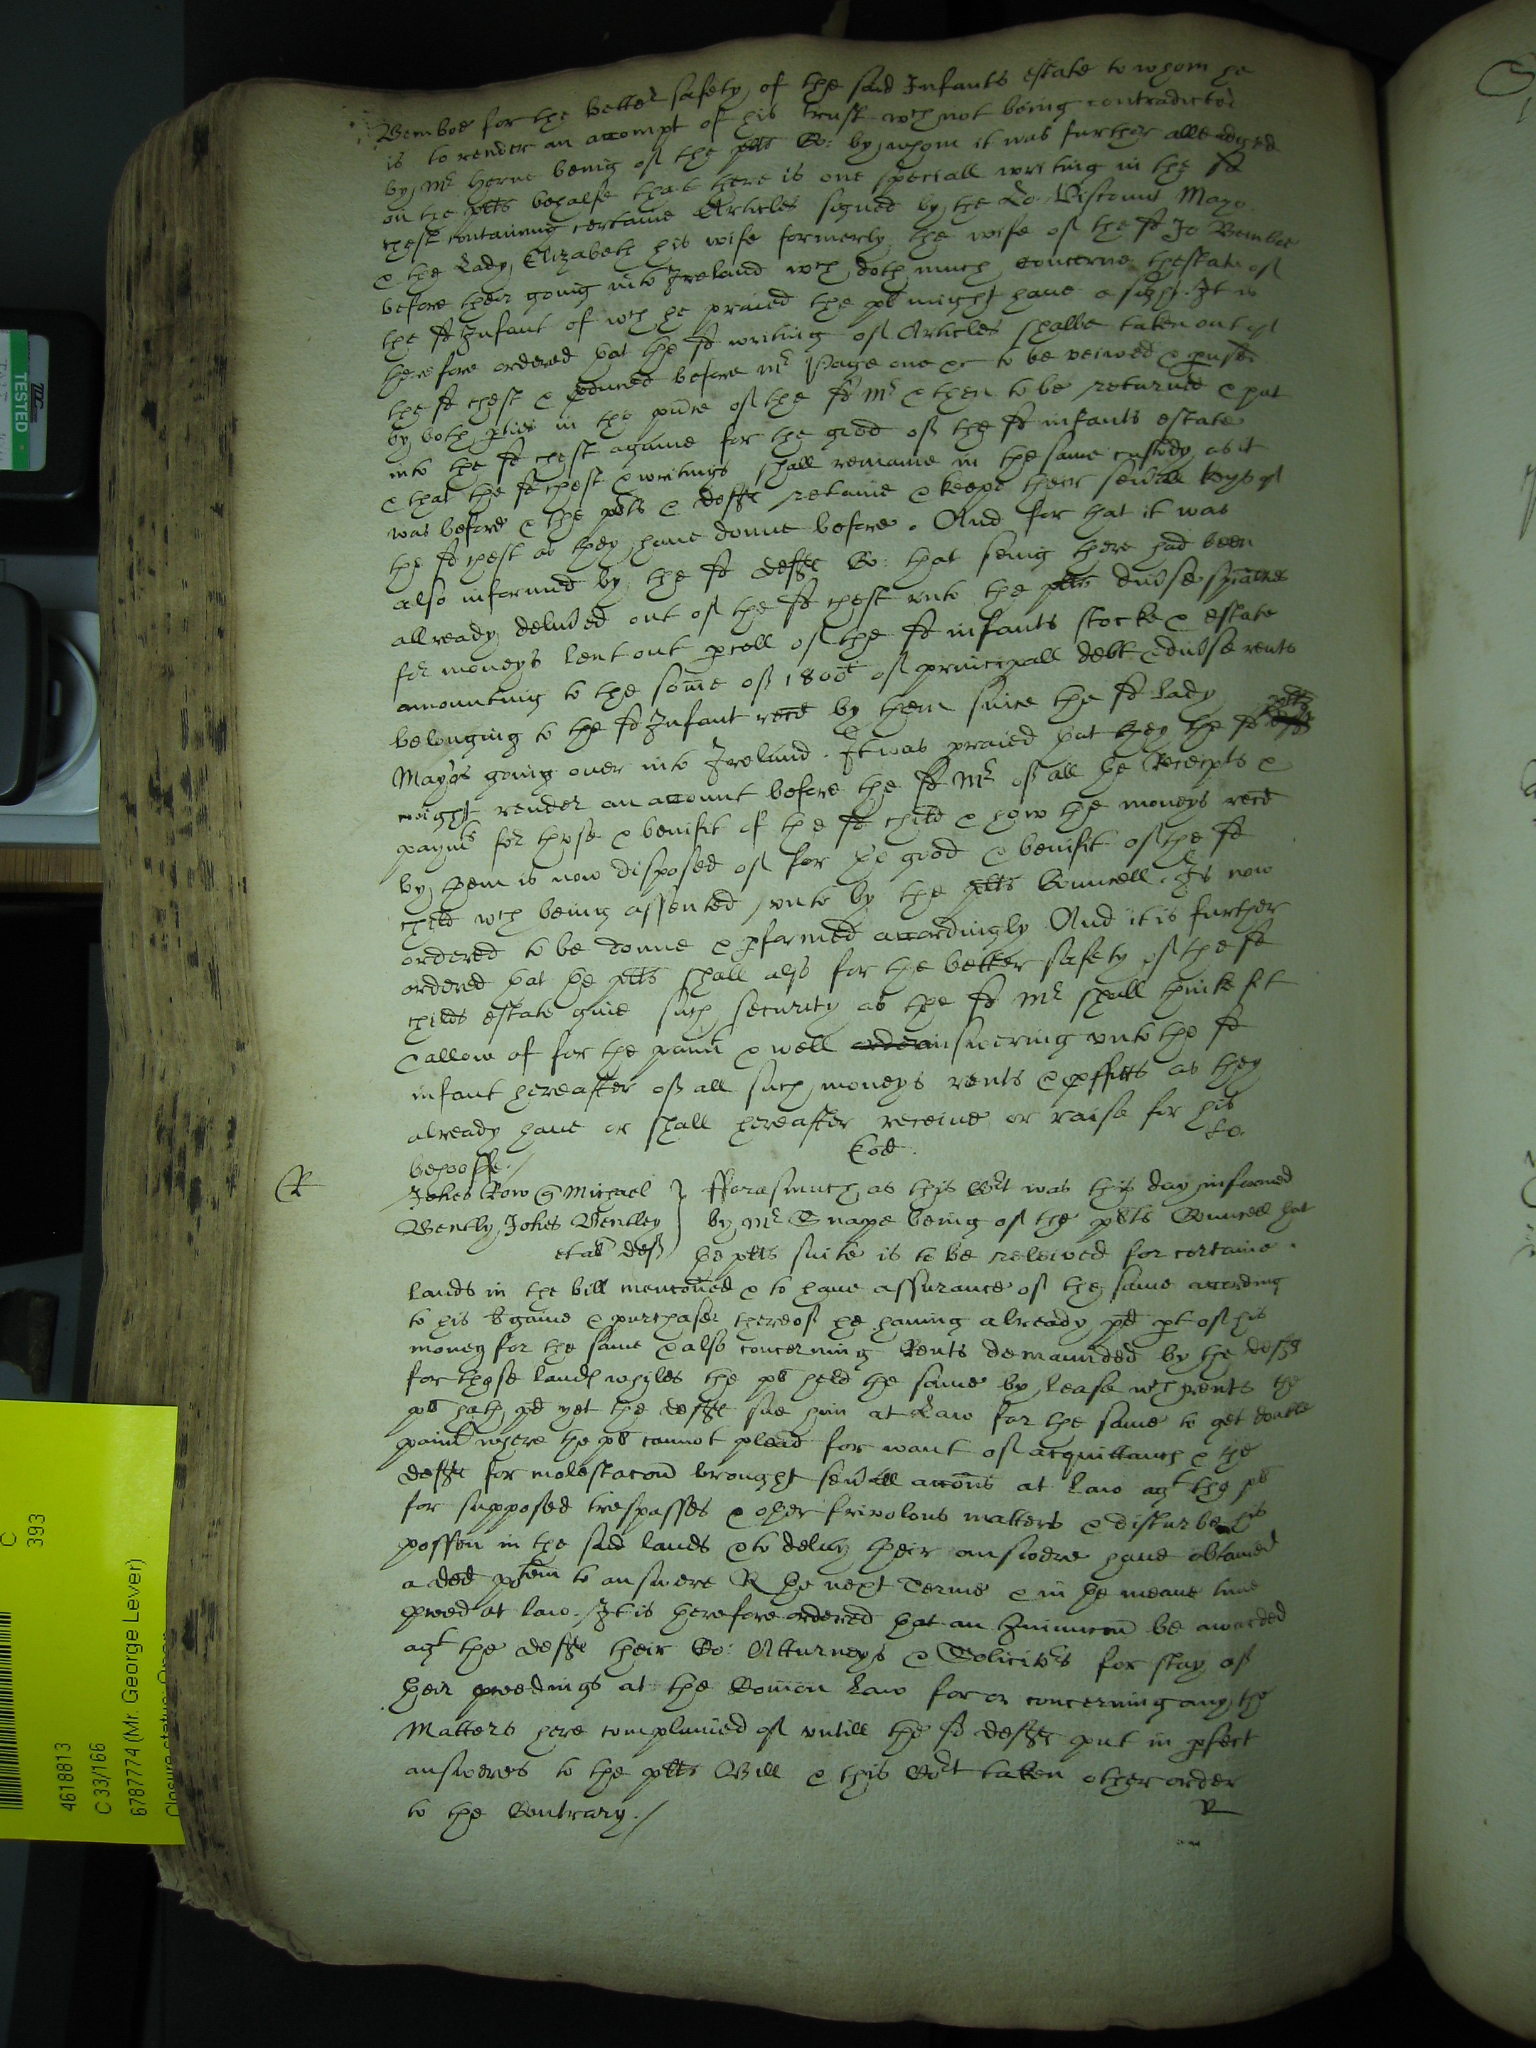 Bemboe for the better safety of the said Infants estate to whom he
is to render an accompt of his trust wch not being contradicted
by Mr Herne being of the plts Co: by whom it was further alleadged
on the plts behalfe that there is one speciall writing in the sd
chest containing certaine Articles signed by the Lo: Viscount Mayo
& the Lady Elizabeth his wife formerly the wife of the sd Jo Bemboe
before their going into Ireland wch doth much concerne thestate of
the sd Infant of wch he praied the plt might have a sight. It is
therefore ordered that the sd writing or Articles shalbe taken out of
the sd chest & produced before Mr Page one &c to be veiwed & pused
by both pties in the pnce of the sd Mr & then to be returned & put
into the sd chest againe for the good of the sd infants estate
& that the sd chest & writings shall remaine in the same custody as it
was before & the plts & defts retaine & keepe their sevall keyes of
the sd chest as they have donne before. And for that it was
also informed by the sd defts Co: that seing there had been
allready delived out of the sd chest unto the plts divse spialties
for moneys lent out pcell of the sd infants stocke & estate
amounting to the some of 1800l of principall debt & divse rents
belonging to the sd Infant recd by them since the sd Lady
Mayos going over into Ireland. It was praied that they the sd plts
might render an account before the sd Mr of all the Receipts &
paymts for thuse & benifit of the sd child & how the moneys recd
by them is now disposed of for the good & benifit of the sd
child wch being assented unto by the plts Councell. Is now
ordered to be donne & pformed accordingly And it is further
ordered that the plts shall also for the better safety of the sd
childs estate give such security as the sd Mr shall thinke fit
& allow of for the paimt & well order answering unto the sd
infant hereafter of all such moneys rents & pffitts as they
already have or shall hereafter receive or raise for his
behoofe./
Eod.
Johes Row Michael
Bently, Johes Bentley
et al deft
fforasmuch as this Cort was this day informed
by Mr Snape being of the plts Councell that
the plts suite is to be releived for certaine
lands in the bill menconed & to have assurance of the same according
to his bgaine & purchase thereof he having already pd pt of his
money for the same & also concerning Rents demaunded by the defts
for those lands whyles the plt held the same by lease wch rents the
plt hath pd yet the defts sue him at Law for the same to get double
paimt where the plt cannot plead for want of acquittance & the
defts for molestacon brought sevall accons at law agt the plt
for supposed trespasses & other frivolous matters & disturbe his
possion in the said lands & to delay their answere have obtained
a ded ptatem to answere R the next Terme & in the meane time
pceed at law. It is therefore ordered that an Iniunccon be awarded
agt the defts their Co: Atturneys & Solicitors for stay of
their pceedings at the Comon Law for or concerning any the
Matters here complained of untill the sd defts put in pfect
answeres to the plts Bill & this Cort taken other order
to the Contrary./
R
TESTED
C
393
4618813
C 33/166
6787774 (Mr. George Lever)
Closure status: Open